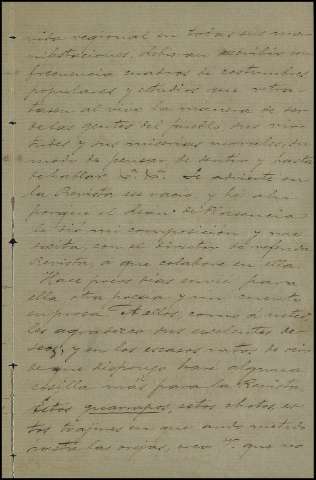 vida regional en todas sus ma-
nifestaciones, debieran escribir con
frecuencia cuadros de costumbres
populares y estudios que retra-
tasen al vivo la manera de ser
de las gentes del pueblo, sus vir-
tudes y sus miserias morales, su
modo de pensar de sentir y hasta
de hablar &. &. Se advierte en
la Revista ese vacio, y he ahí
porque el de Plasencia
le dió mi composición y me
invita, con el director de referida
Revista, a que colabore en ella.
Hace pocos días envié para
ella otra poesía y un cuento
en prosa. A ellos, como á usted
les agradezco sus excelentes de-
seos, y en los escasos ratos de
que dispongo haré alguna
cosilla más para la Revista.
Estos guarrapos, estos chotos, es-
tos trajines en que ando metido
hasta las orejas, crea V. que no